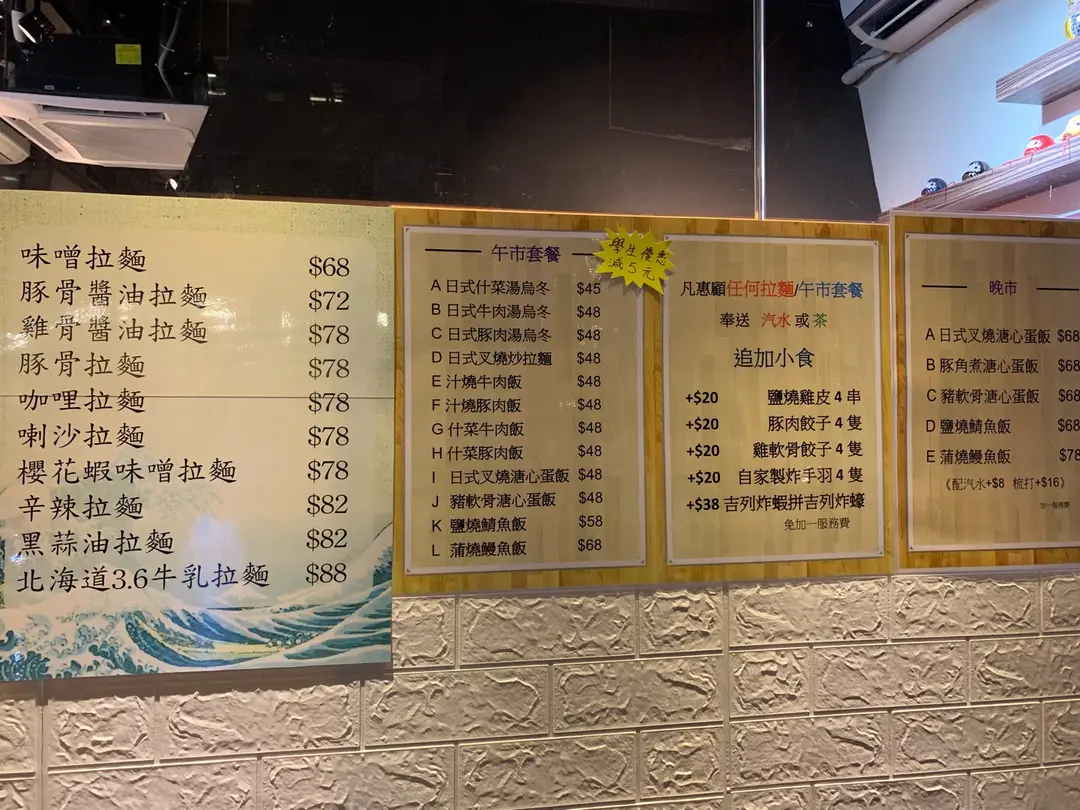 味噌拉麵 $68
豚骨醬油拉麵 $72
雞骨醬油拉麵 $78
豚骨拉麵 $78
咖哩拉麵 $78
喇沙拉麵 $78
櫻花蝦味噌拉麵 $78
辛辣拉麵 $82
黑蒜油拉麵 $82
北海道3.6牛乳拉麵 $88
午市套餐
學生優惠
減5元
A 日式什菜湯烏冬 $45
B 日式牛肉湯烏冬 $48
C 日式豚肉湯烏冬 $48
D 日式叉燒炒拉麵 $48
E 汁燒牛肉飯 $48
F 汁燒豚肉飯 $48
G 什菜牛肉飯 $48
H 什菜豚肉飯 $48
I 日式叉燒溏心蛋飯 $48
J 豬軟骨溏心蛋飯 $48
K 鹽燒鯖魚飯 $58
L 蒲燒鰻魚飯 $68
凡惠顧任何拉麵/午市套餐
奉送 汽水 或 茶
追加小食
+$20 鹽燒雞皮 4 串
+$20 豚肉餃子 4 隻
+$20 雞軟骨餃子 4 隻
+$20 自家製炸手羽 4 隻
+$38 吉列炸蝦拼吉列炸蠔
免加一服務費
晚市
A 日式叉燒溏心蛋飯 $68
B 豚角煮溏心蛋飯 $68
C 豬軟骨溏心蛋飯 $68
D 鹽燒鯖魚飯 $68
E 蒲燒鰻魚飯 $78
《配汽水+$8 梳打+$16》
加一服務費